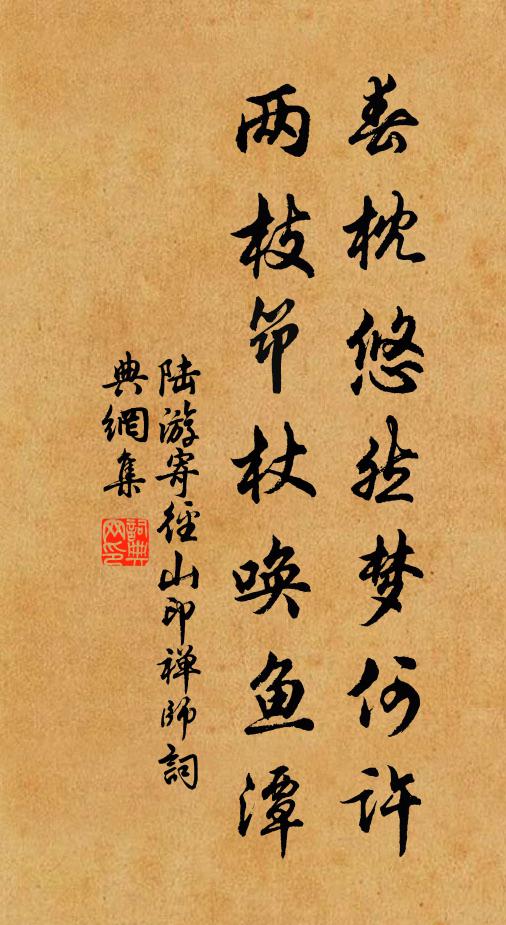 春枕悠然梦何许
两枝笻杖唤鱼潭
陆游寄径山印禅师词
典網集
詞典網印